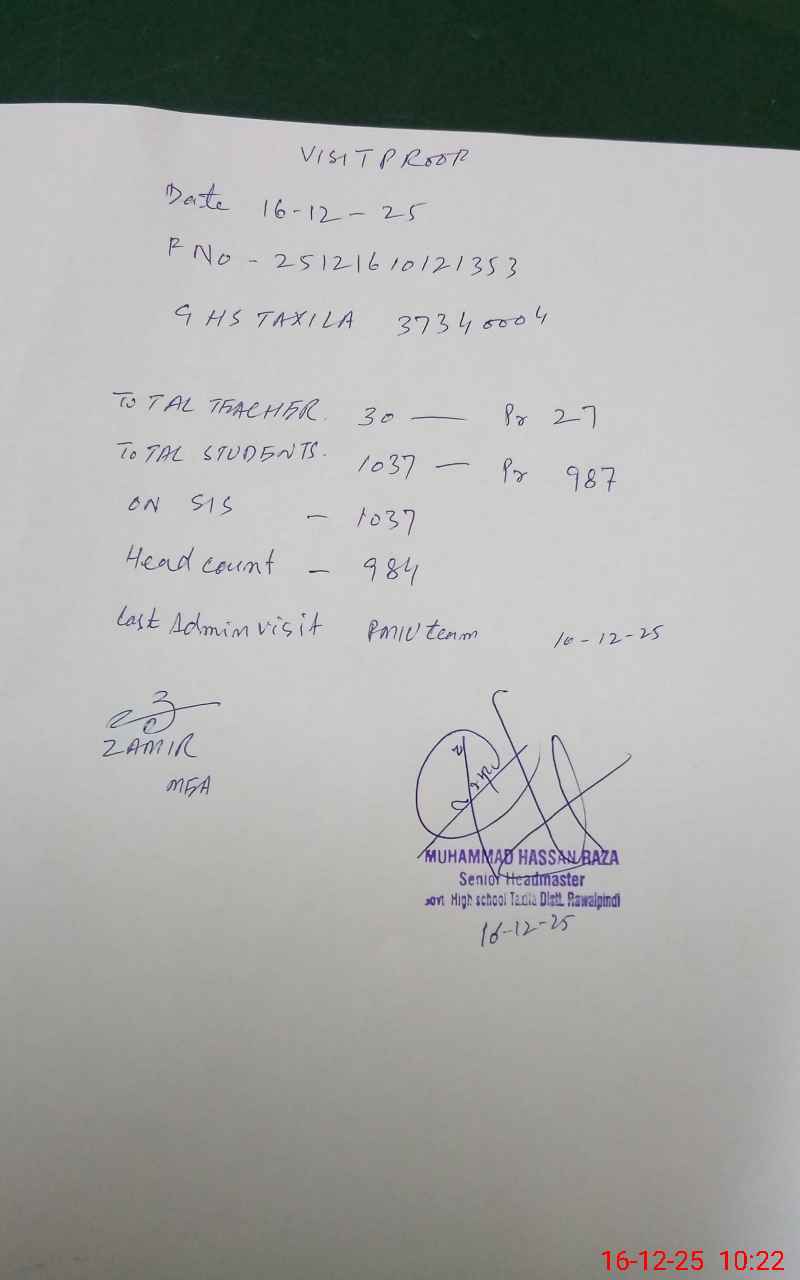 VISIT PROOF
Date 16-12-25
F No - 25121610121353
GHS TAXILA 37340004
TOTAL TEACHER. 30 — Pr 27
TOTAL STUDENTS. 1037 — Pr 987
ON SIS - 1037
Head count - 984
Last Admin visit PMIU team 10-12-25
ZAMIR
MEA
MUHAMMAD HASSAN RAZA
Senior Headmaster
Govt High school Taxila Distt. Rawalpindi
16-12-25
16-12-25 10:22